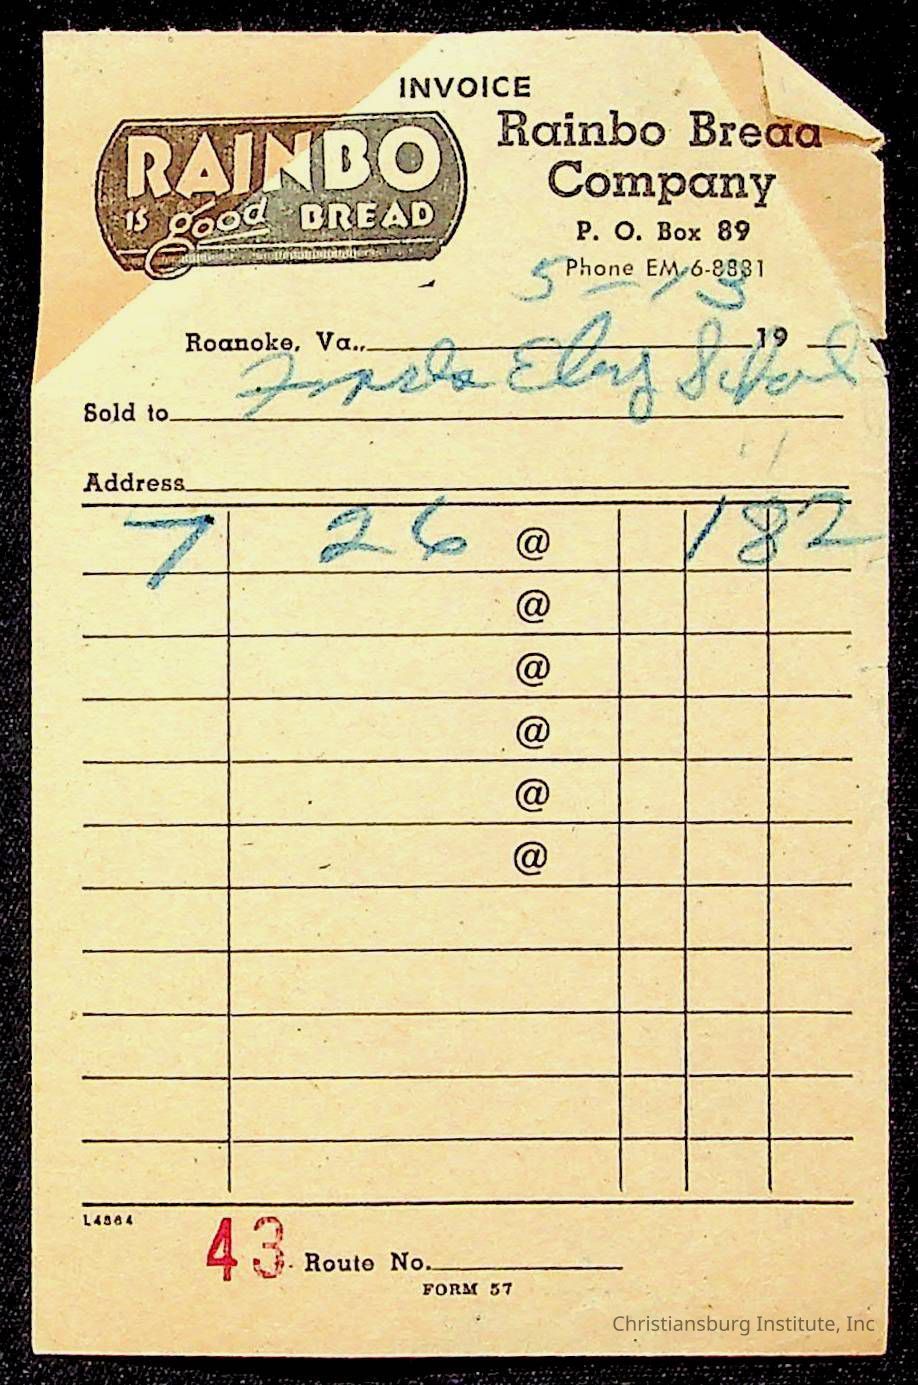 INVOICE
RAINBO
IS good BREAD
Rainbo Bread
Company
P. O. Box 89
Phone EM 6-8881
5-13
Roanoke, Va., 19
Sold to Elem School
Address
7 26 @ 182
@
@
@
@
@
L4864
43 Route No.
FORM 57
Christiansburg Institute, Inc